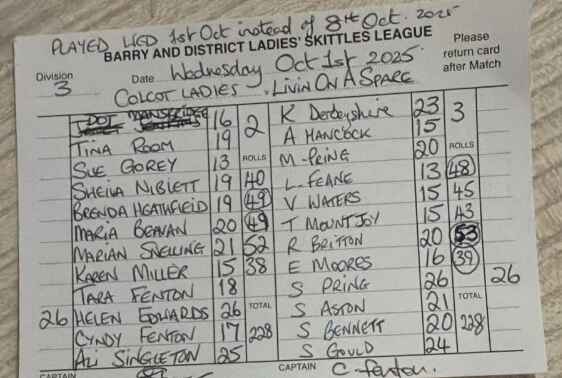 PLAYED WED 1st Oct instead of 8th Oct. 2025
BARRY AND DISTRICT LADIES' SKITTLES LEAGUE
Please return card after Match
Division 3
Date Wednesday Oct 1st 2025.
COLCOT LADIES . LIVIN ON A SPARE
DOT 16 2 K Derbyshire 23 3
TINA ROOM 19 A HANCOCK 15
SUE GOREY 13 ROLLS M. PRING 20 ROLLS
SHEILA NIBLETT 19 40 L. FEANE 13 48
BRENDA HEATHFIELD 19 49 V WATERS 15 45
MARIA BEAVAN 20 49 T MOUNTJOY 15 43
MARIAN SNELLING 21 52 R BRITTON 20 53
KAREN MILLER 15 38 E MOORES 16 39
TARA FENTON 18 S PRING 26 26
26 HELEN EDWARDS 26 TOTAL S ASTON 21 TOTAL
CYNDY FENTON 17 228 S BENNETT 20 228
ALI SINGLETON 25 S GOULD 24
CAPTAIN CAPTAIN C. Fenton.